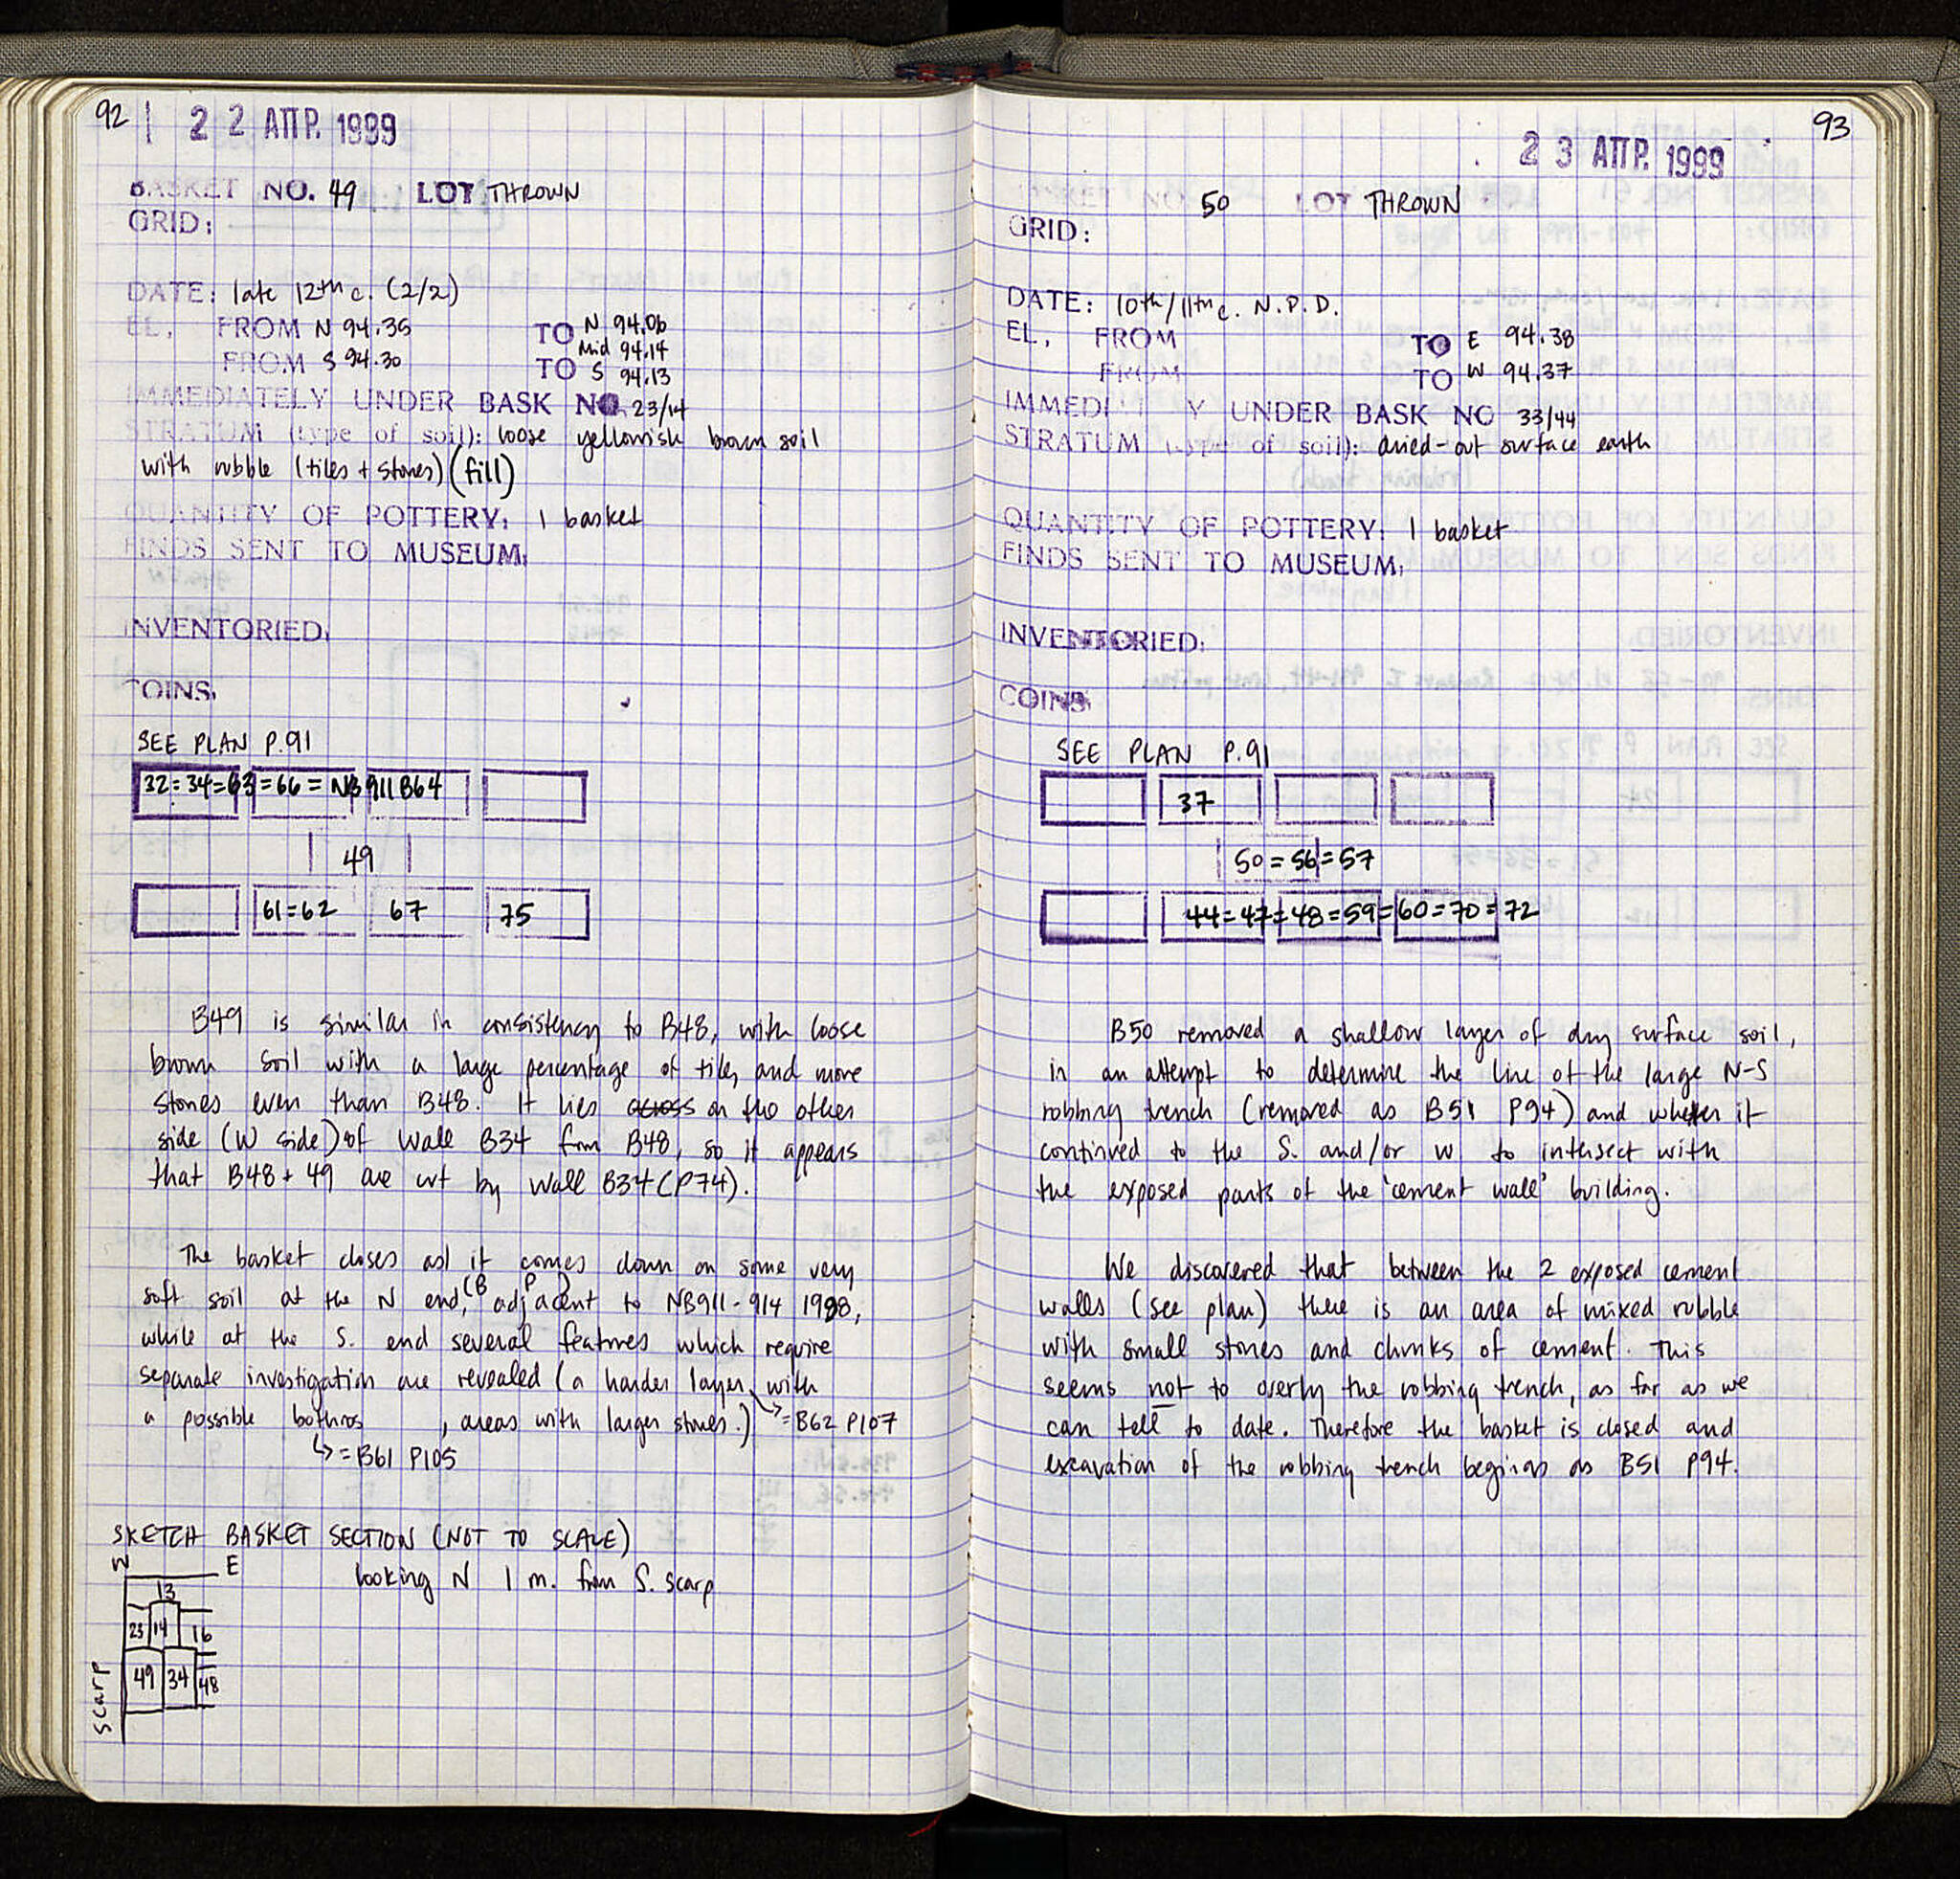 92
22 ΑΠΡ. 1999
BASKET NO. 49 LOT THROWN
GRID:
DATE: late 12th c. (2/2)
EL, FROM N 94.35 TO N 94.06
Mid 94.14
FROM S 94.30 TO S 94.13
IMMEDIATELY UNDER BASK NO 23/14
STRATUM (type of soil): loose yellowish brown soil
with rubble (tiles + stones) (fill)
QUANTITY OF POTTERY: 1 basket
FINDS SENT TO MUSEUM:
INVENTORIED:
COINS:
SEE PLAN P.91
32=34=63=66=NB911 B64
49
61=62 67 75
B49 is similar in consistency to B48, with loose
brown soil with a large percentage of tile, and more
stones even than B48. It lies across on the other
side (W side) of Wall B34 from B48, so it appears
that B48+49 are cut by Wall B34 (P74).
The basket closes as it comes down on some very
soft soil at the N end, (B P ) adjacent to NB911-914 1998,
while at the S. end several features which require
separate investigation are revealed (a harder layer, with
a possible bothros , areas with larger stones.) ↳=B62 P107
↳=B61 P105
SKETCH BASKET SECTION (NOT TO SCALE)
W E
looking N 1 m. from S. scarp
13
23 14 16
49 34 48
scarp
93
23 ΑΠΡ. 1999
BASKET NO 50 LOT THROWN
GRID:
DATE: 10th/11th c. N.P.D.
EL, FROM TO E 94.38
FROM TO W 94.37
IMMEDI T Y UNDER BASK NO 33/44
STRATUM (type of soil): dried-out surface earth
QUANTITY OF POTTERY: 1 basket
FINDS SENT TO MUSEUM:
INVENTORIED:
COINS
SEE PLAN P.91
37
50=56=57
44=47=48=59=60=70=72
B50 removed a shallow layer of dry surface soil,
in an attempt to determine the line of the large N-S
robbing trench (removed as B51 P94) and whether it
continued to the S. and/or W to intersect with
the exposed parts of the 'cement wall' building.
We discovered that between the 2 exposed cement
walls (see plan) there is an area of mixed rubble
with small stones and chunks of cement. This
seems not to overly the robbing trench, as far as we
can tell to date. Therefore the basket is closed and
excavation of the robbing trench begins as B51 P94.